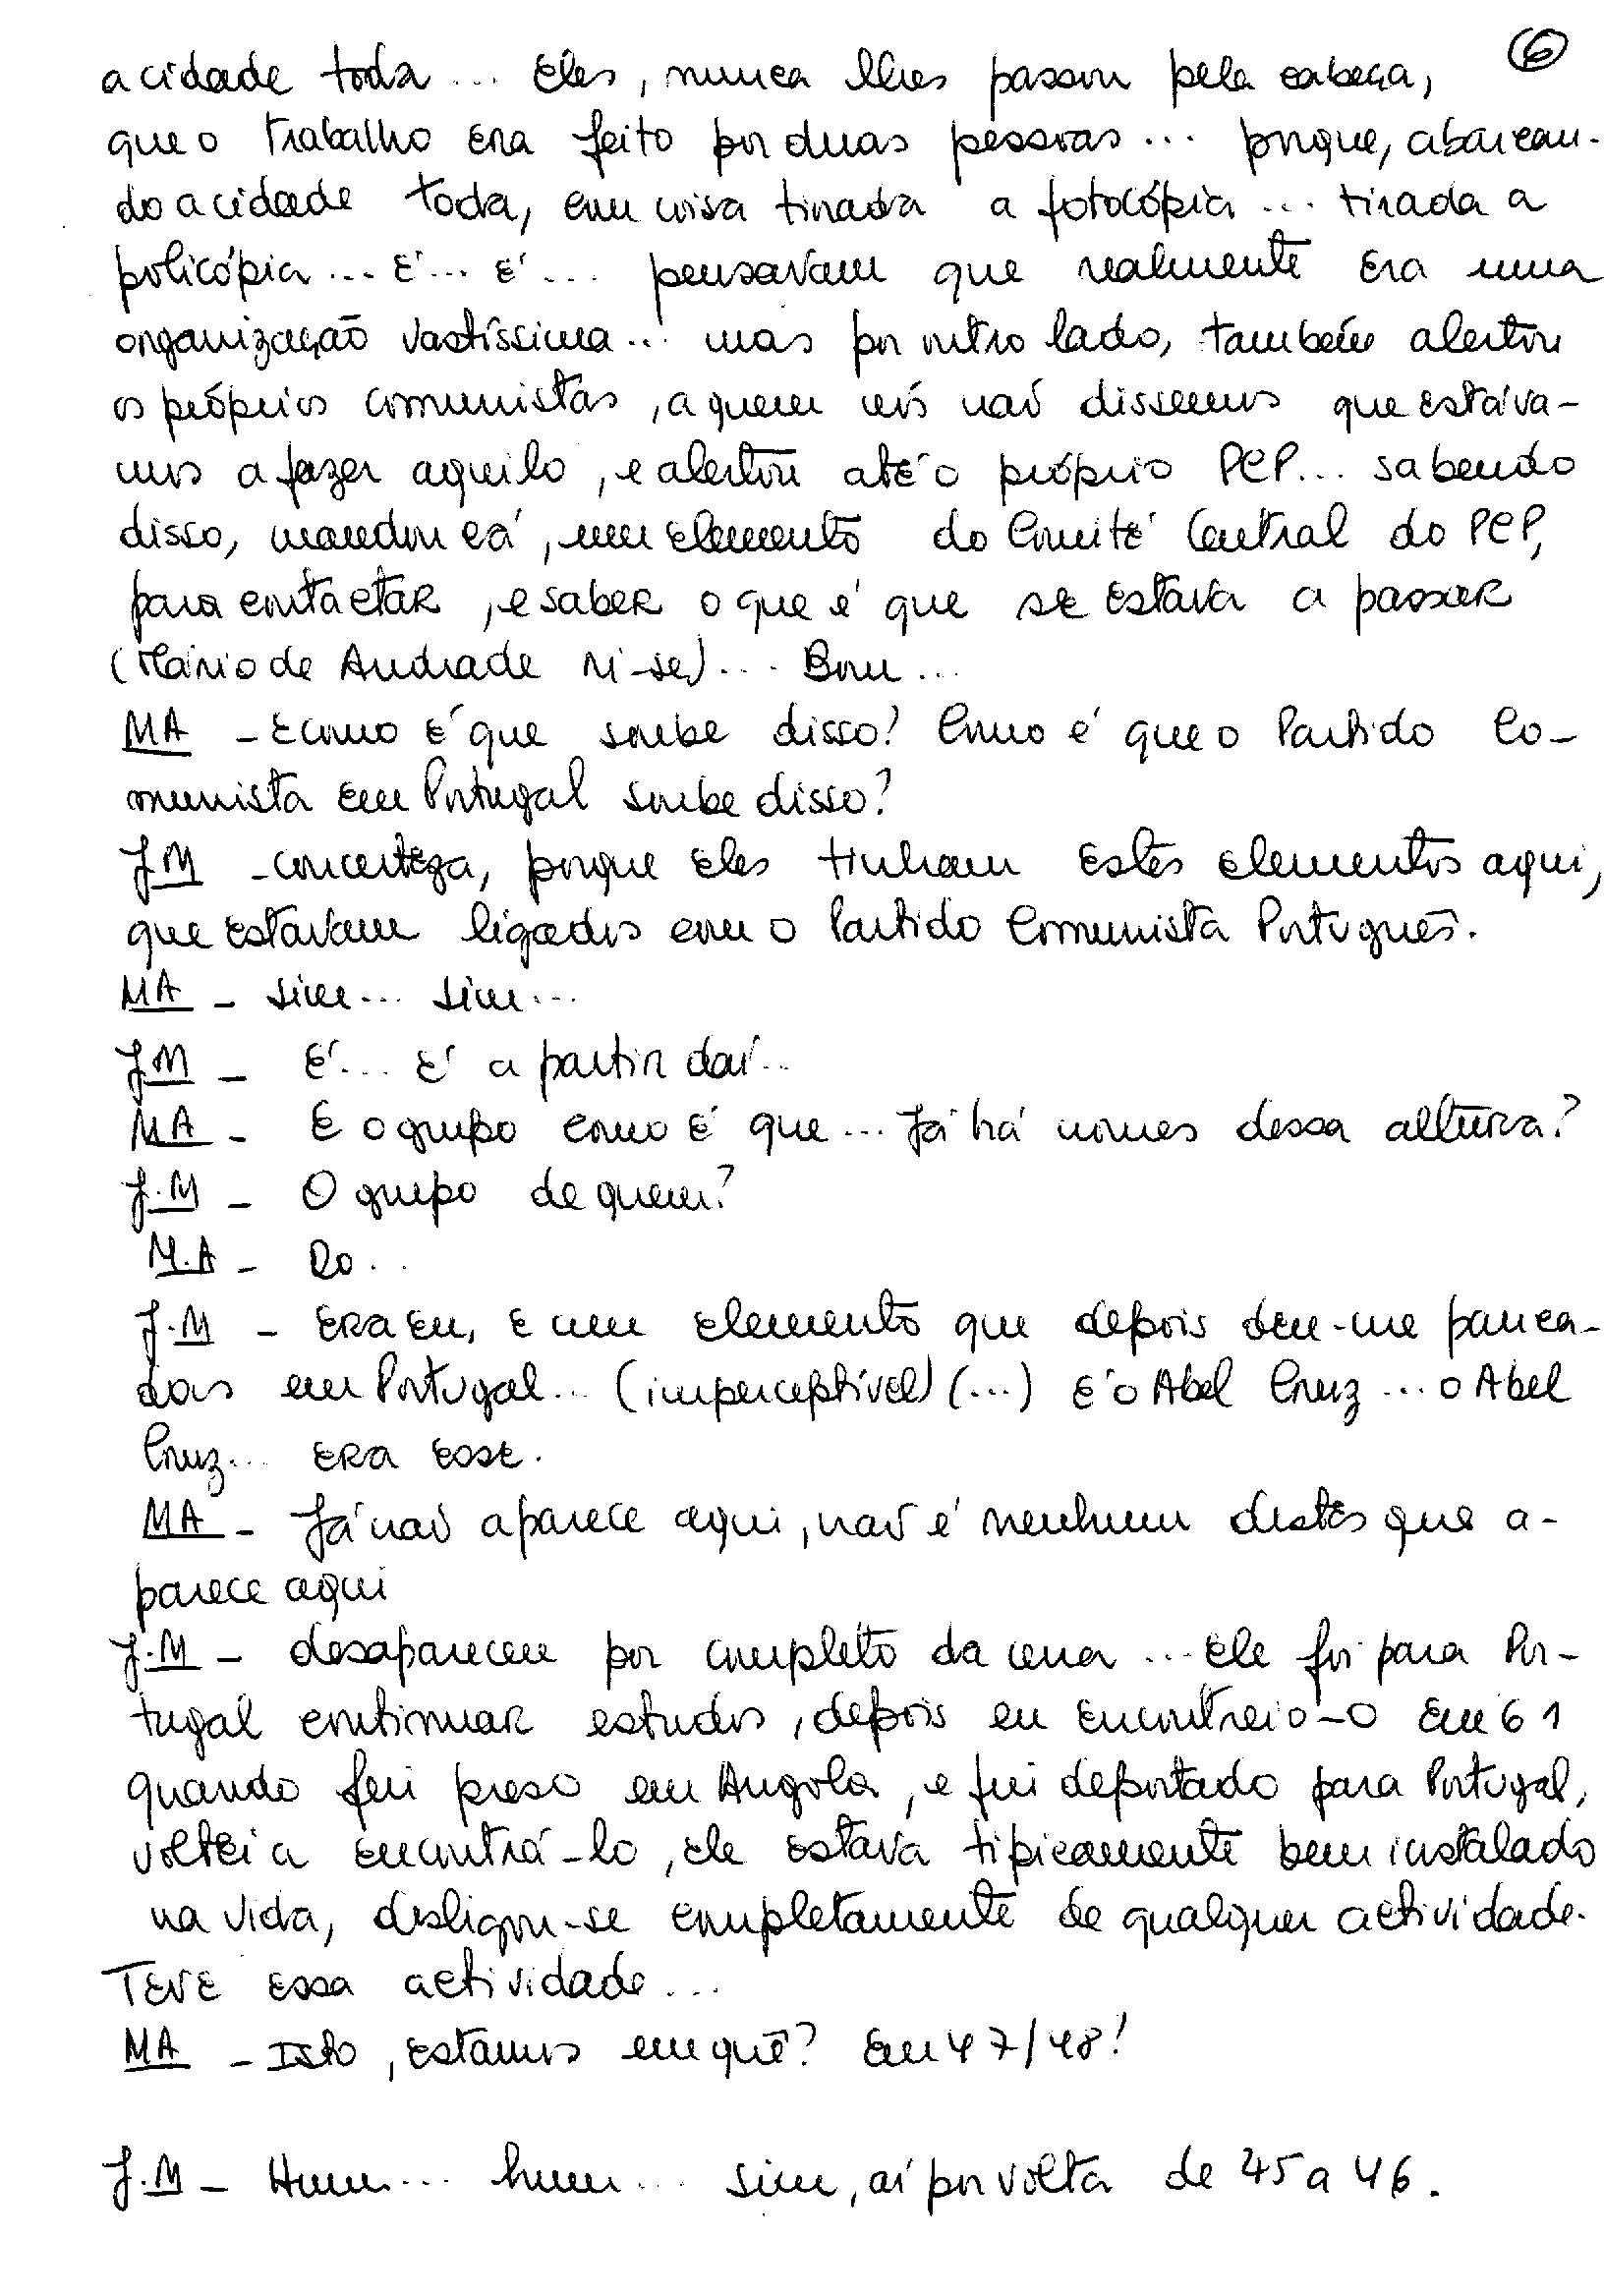 6
a cidade toda... Eles, nunca lhes passou pela cabeça,
que o trabalho era feito por duas pessoas... porque, abarcan-
do a cidade toda, com coisa tirada a fotocópia... tirada a
policópia... É... É... pensavam que realmente era uma
organização vastíssima... mas por outro lado, também alertou
os próprios comunistas, a quem nós não dissemos que estáva-
mos a fazer aquilo, e alertou até o próprio PCP... sabendo
disso, mandou cá, um elemento do Comité Central do PCP,
para contactar, e saber o que é que se estava a passar
(Mário de Andrade ri-se)... Bom...
MA - E como é que soube disso? Como é que o Partido Co-
munista em Portugal soube disso?
J.M - concerteza, porque eles tinham estes elementos aqui,
que estavam ligados com o Partido Comunista Português.
MA - Sim... Sim...
J.M - É... É a partir daí...
MA - E o grupo como é que... Já há nomes dessa altura?
J.M - O grupo de quem?
M.A - Do...
J.M - Era eu, e um elemento que depois deu-me panca-
das em Portugal... (imperceptível) (...) É o Abel Cruz... o Abel
Cruz... era esse.
MA - Já não aparece aqui, não é nenhum destes que a-
parece aqui
J.M - desapareceu por completo da cena... Ele foi para Por-
tugal continuar estudos, depois eu encontreio-o em 61
quando fui preso em Angola, e fui deportado para Portugal,
voltei a encontrá-lo, ele estava tipicamente bem instalado
na vida, desligou-se completamente de qualquer actividade.
Teve essa actividade...
MA - Isto, estamos em quê? Em 47/48?
J.M - Hum... hum... sim, aí por volta de 45 a 46.